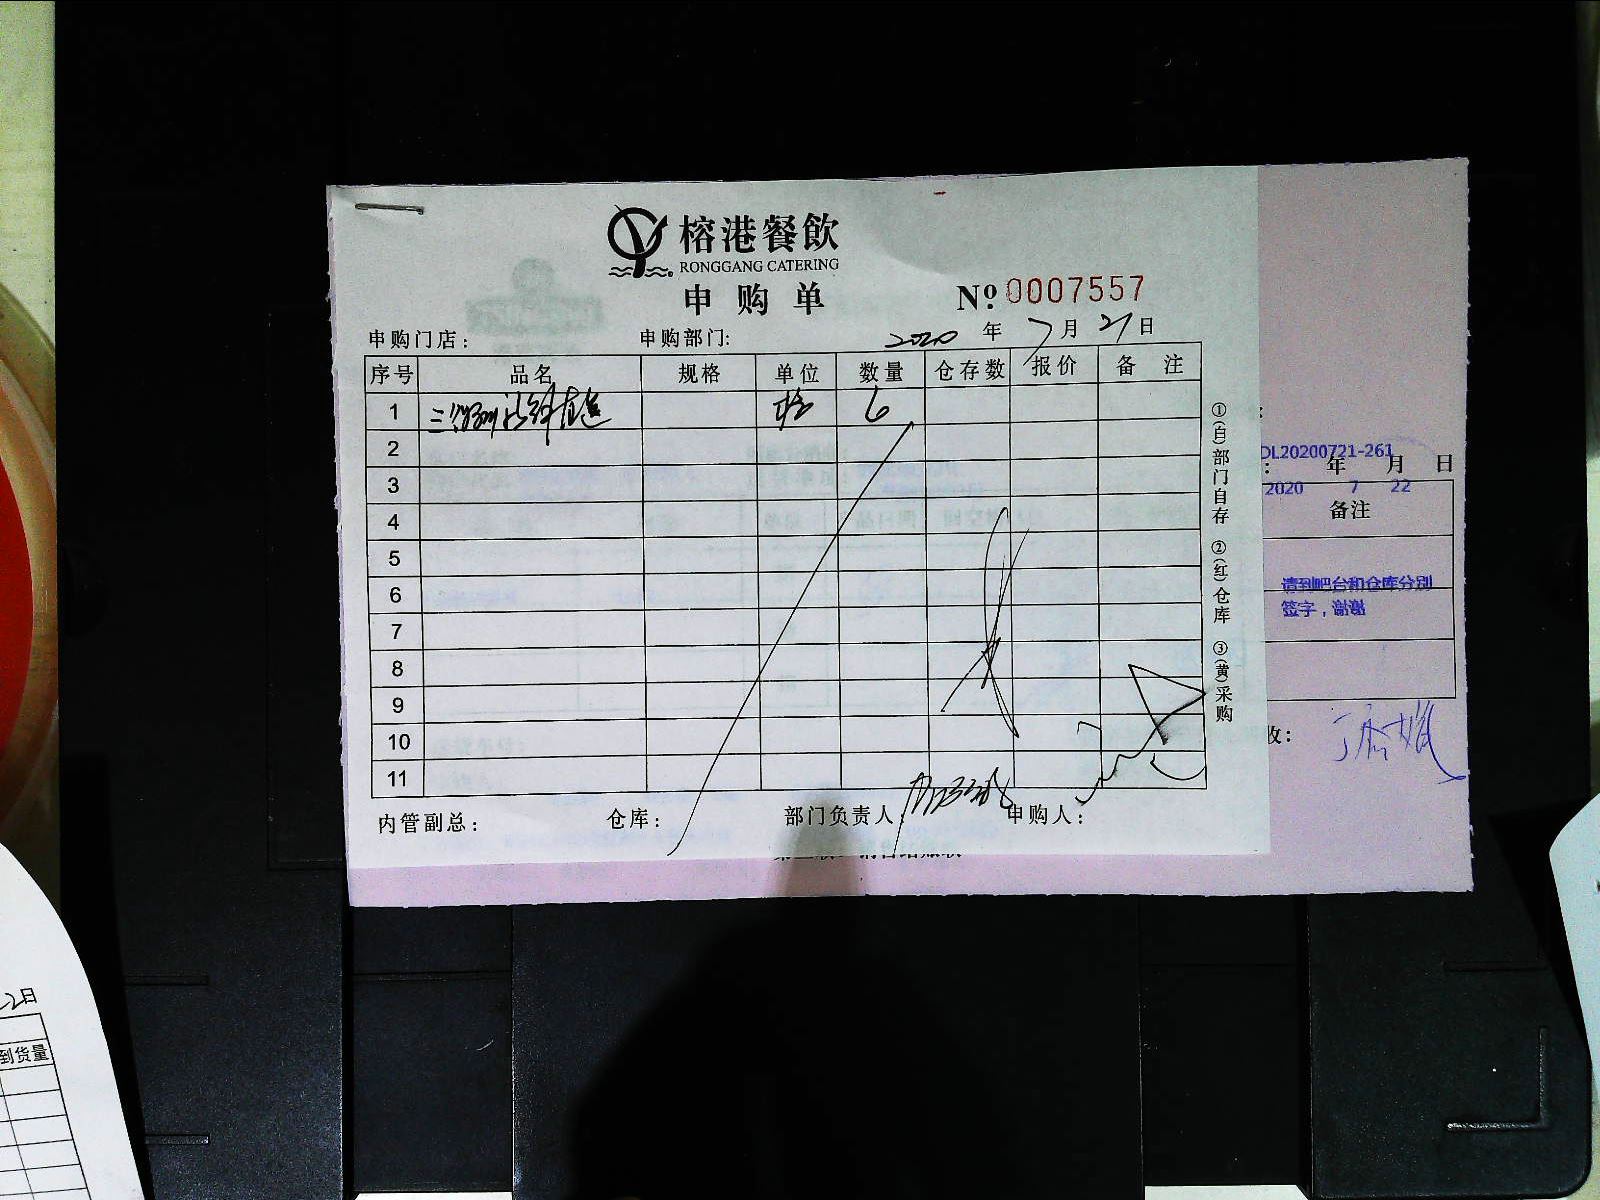 榕港餐飲
RONGGANG CATERING
申购单
No. 0007557
申购门店: 申购部门: 2020年7月21日
序号 品名 规格 单位 数量 仓存数 报价 备注
1 6
2
3
4
5
6
7
8
9
10
11
内管副总: 仓库: 部门负责人: 申购人:
①(白)部门自存 ②(红)仓库 ③(黄)采购
DL20200721-261
年 月 日
2020 7 22
备注
请到吧台和仓库分别
签字，谢谢
收:
2日
到货量